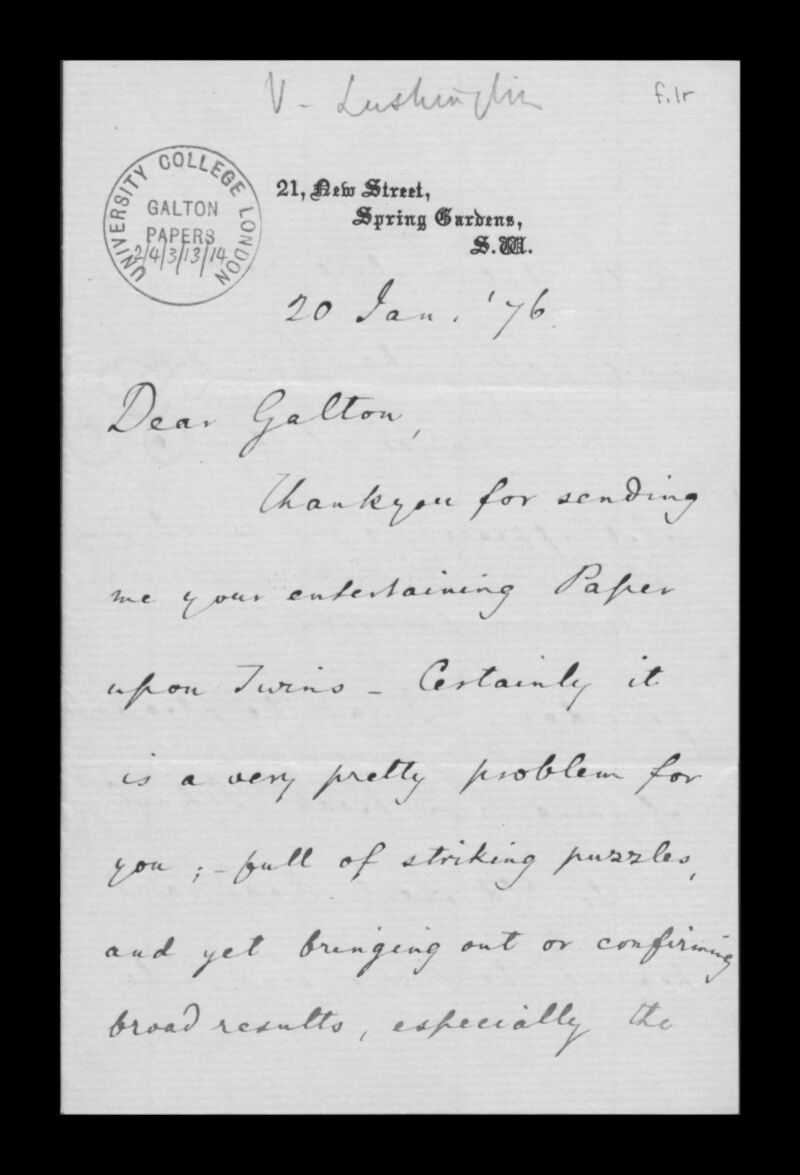 V - Lushington
f.1r
UNIVERSITY COLLEGE LONDON
GALTON
PAPERS
2/4/3/13/14
21, New Street,
Spring Gardens,
S.W.
20 Jan. '76
Dear Galton,
Thank you for sending
me your entertaining Paper
upon Twins - Certainly it
is a very pretty problem for
you ; - full of striking puzzles,
and yet bringing out or confirming
broad results, especially the